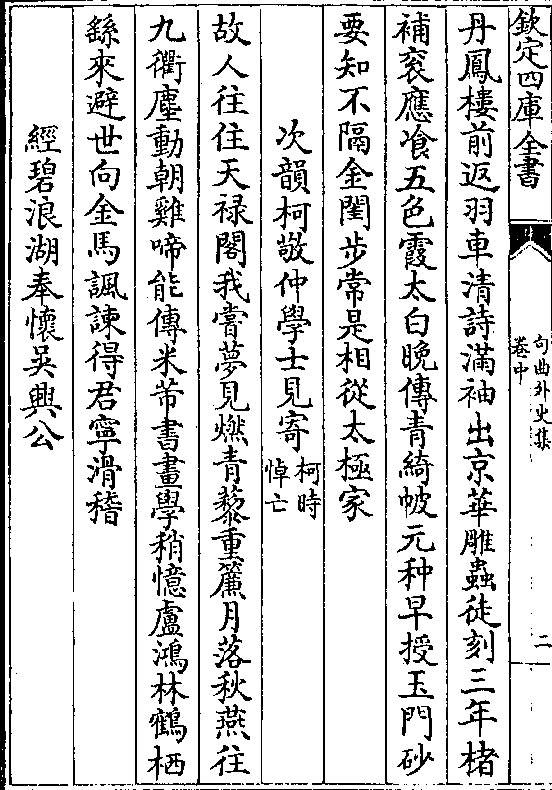 欽定四庫全書
句曲外史集
卷中
二
丹鳳樓前返羽車清詩滿袖出京華雕蟲徒刻三年楮
補衮應飡五色霞太白晚傳青綺帔元种早授玉門砂
要知不隔金閨步常是相從太極家
次韻柯敬仲學士見寄
柯時
悼亡
故人往住天禄閣我嘗夢見燃青藜重簾月落秋燕往
九衢塵動朝雞啼能傳米芾書畫學稍憶盧鴻林鶴栖
繇來避世向金馬諷諫得君寧滑稽
經碧浪湖奉懷吳興公